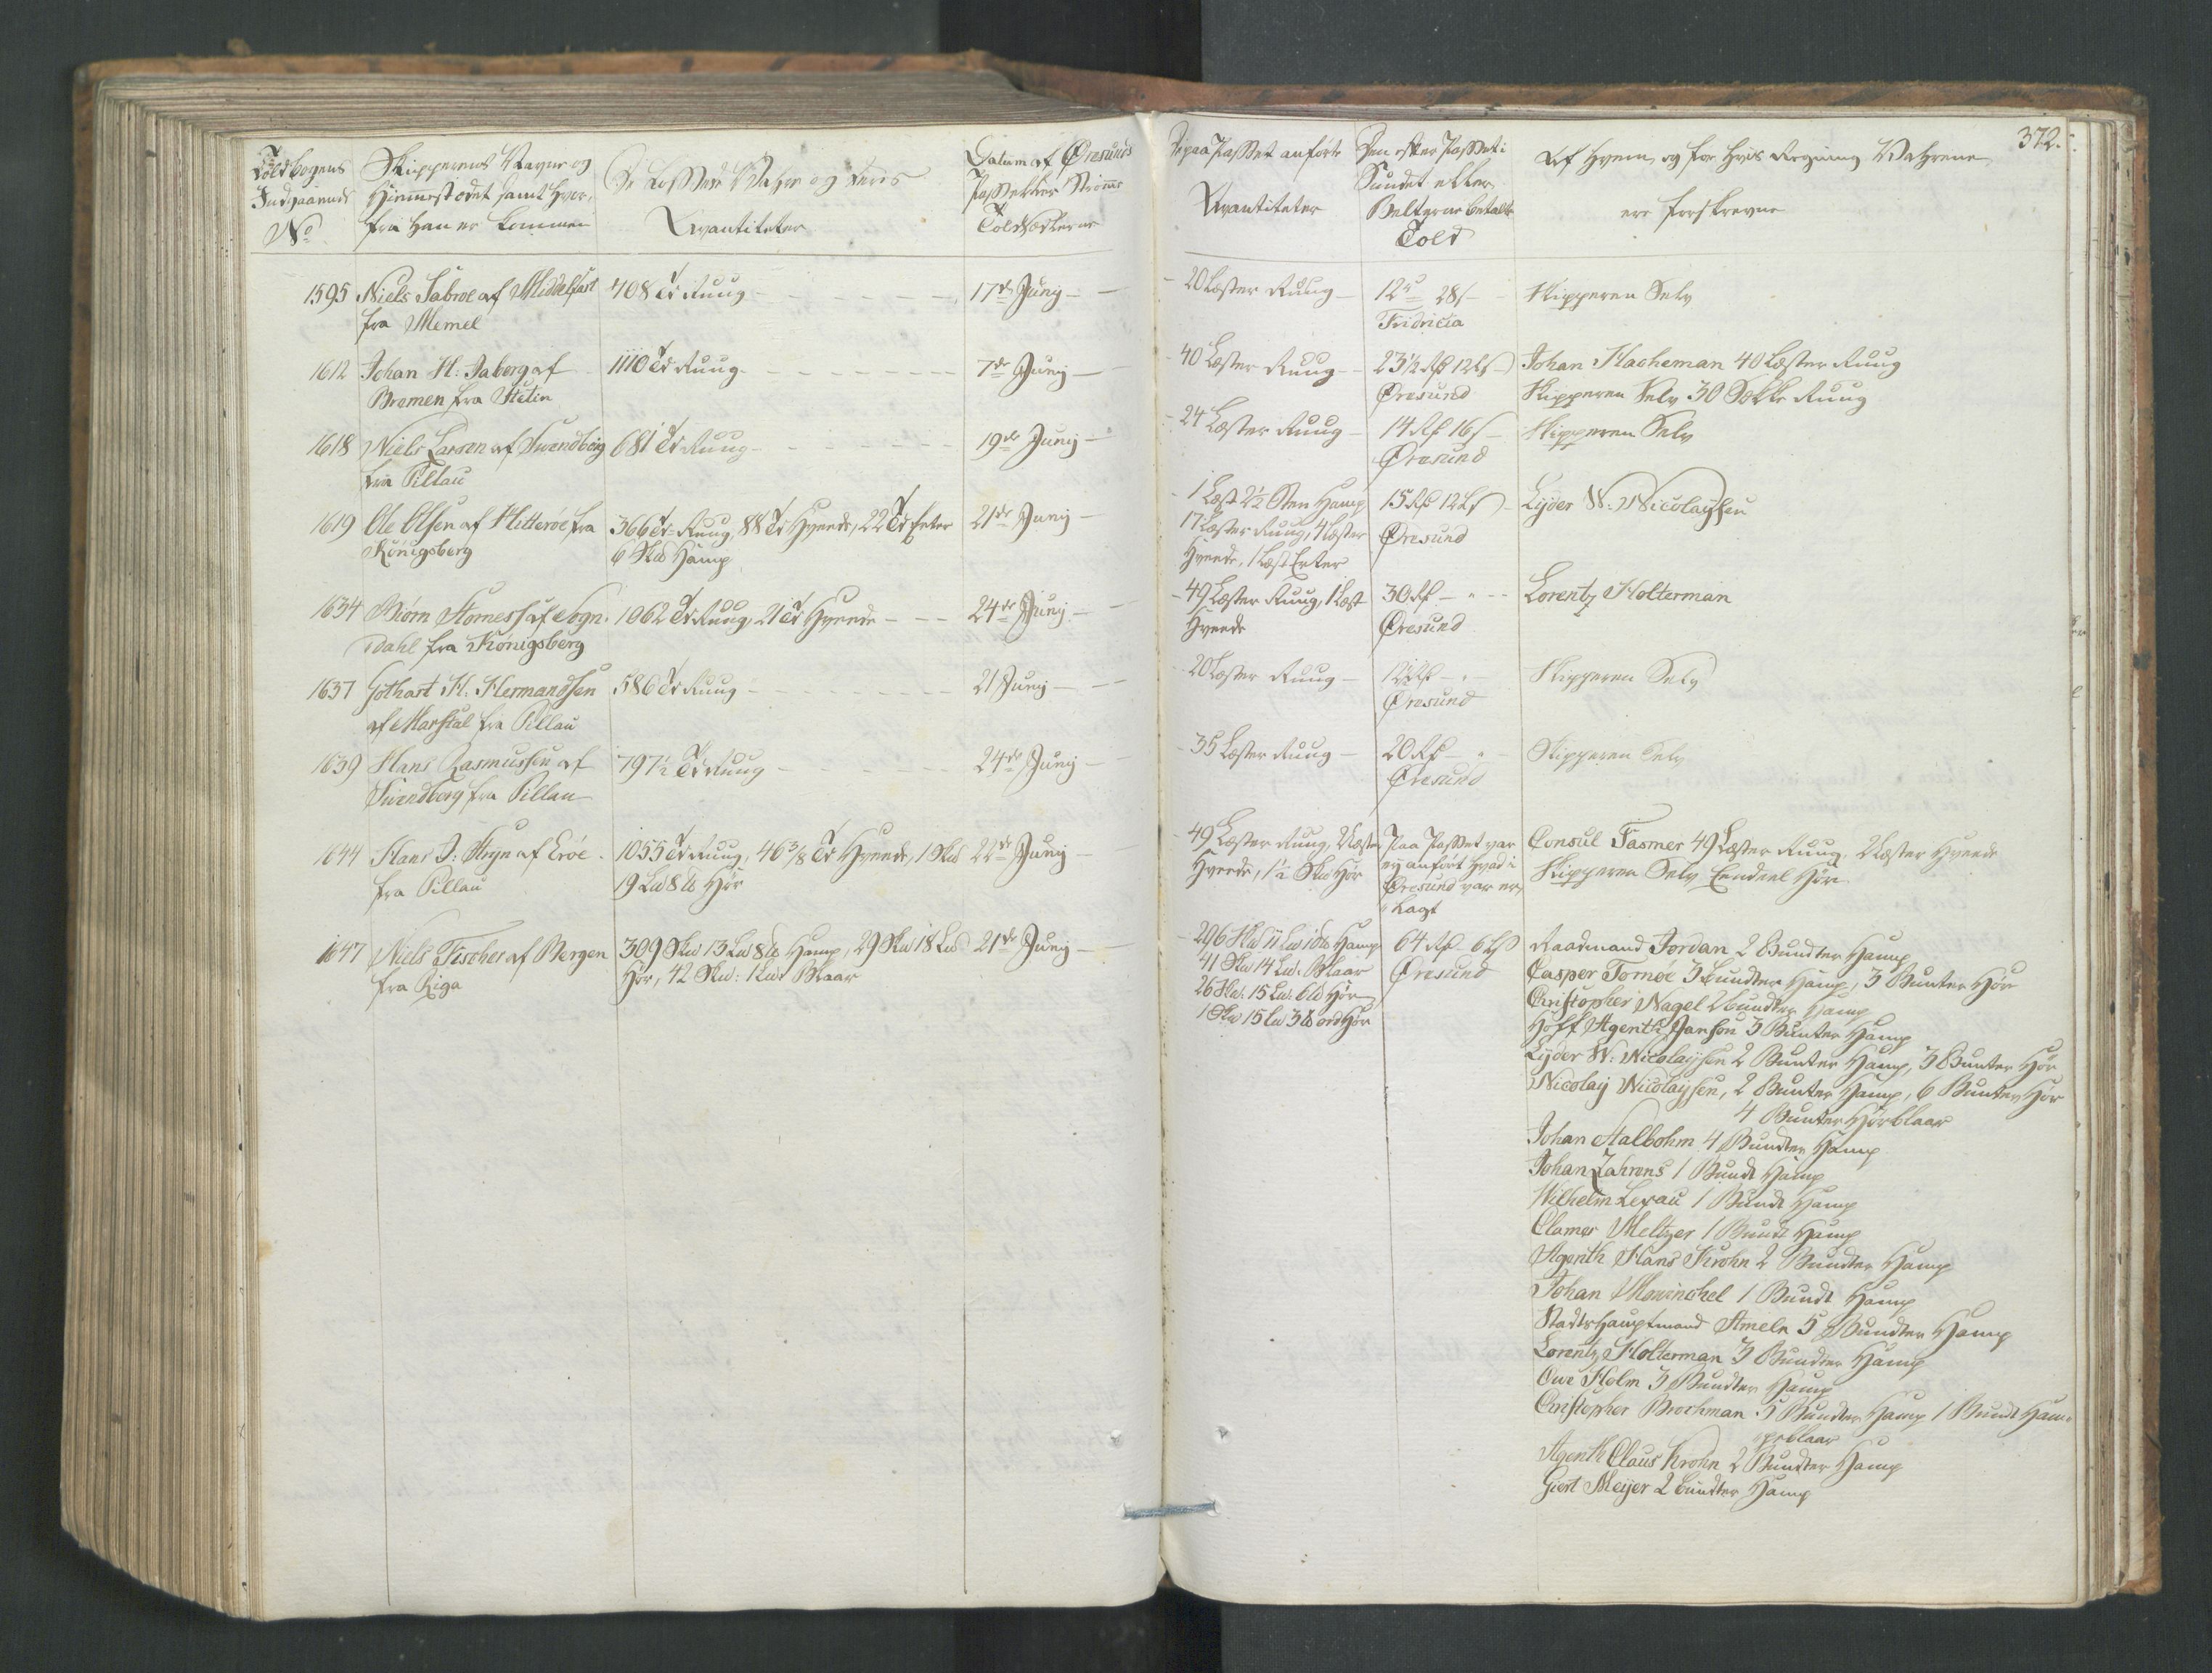 372.
Toldbogens
Indgaaende
No
Skipperens Navne og
Hiemmestædet samt hvor,
fra han er kommen
De lossede Vahre og deres
Qvantiteter
Datum af Øresunds
Passet eller Strøms
Toldsædlerne
De paa Passet anførte
Qvantiteter
Den efter Passet i
Sundet eller
Belterne betalte
Told
Af hvem og for hvis Regning Vahrene
ere forskrevne
1595 Niels Sabroe af Middelfart
fra Memel
408 Td Ruug
17de Junij
20 Læster Ruug
12 28
Fridricia
Skipperen Selv
1612 Johan H: Jaberg af
Bremen fra Stetin
1110 Td Ruug
7de Junij
40 Læster Ruug
23 1/2 Rd 12
Øresund
Johan Hacheman 40 Læster Ruug
Skipperen Selv 30 Sække Ruug
1618 Niels Larsen af Svendborg
fra Pillau
681 Td Ruug
19de Junij
24 Læster Ruug
14 Rd 16
Øresund
Skipperen Selv
1619 Ole Olsen af Hitterøe fra
Königsberg
366 Td Ruug, 88 Td Hvede, 22 Td Erter
6 Skd Hamp
21de Junij
1 Læst 2 1/2 Sten Hamp
17 Læster Ruug, 4 Læster
Hvede, 1 Læst Erter
15 Rd 12
Øresund
Lyder W: Nicolaysen
1634 Biørn Stornes af Sogn,
dahl fra Königsberg
1062 Td Ruug, 21 Td Hvede
24de Junij
49 Læster Ruug, 1 Læst
Hvede
30 Rd
Øresund
Lorentz Holterman
1637 Gothart H. Hermandsen
af Marstal fra Pillau
586 Td Ruug
21 Junij
20 Læster Ruug
12 Rd
Øresund
Skipperen Selv
1639 Hans Rasmussen af
Svendborg fra Pillau
797 1/2 Td Ruug
24de Junij
35 Læster Ruug
20 Rd
Øresund
Skipperen Selv
1644 Hans J: af Eröe
fra Pillau
1055 Td Ruug, 46 3/8 Td Hvede, 1 Skd
19 Ld 8 lb Hør
22de Junij
49 Læster Ruug, 2 Læster
Hvede, 1 1/2 Skd Hør
Paa Passet var
ey anført hvad i
Øresund var er,
lagt
Consul Fasmer 49 Læster Ruug, 2 Læster Hvede
Skipperen Selv Eendeel Hør
1647 Niels Fischer af Bergen
fra Riga
309 Skd 13 Ld 8 lb Hamp, 29 Skd 18 Ld
Hør, 42 Skd: 1 Ld Blaar
21de Junij
296 Skd 11 Ld 10 lb Hamp
41 Skd 14 Ld. Blaar
26 Skd. 15 Ld. 6 lb Hør
1 Skd 15 Ld 3 lb ord Hør
64 Rd 6
Øresund
Raadmand Jordan 2 Bundter Hamp
Casper Tornøe 3 Bundter Hamp, 3 Bunter Hør
Christopher Nagel 2 bundter Hamp
Hoff Agenth Janson 3 Bunter Hamp
Lyder W: Nicolaysen 2 Bunter Hamp, 3 Bunter Hør
Nicolay Nicolaysen, 2 Bunter Hamp, 6 Bunter Hør
4 Bunter Hørblaar
Johan Stalbohm 4 Bundter Hamp
Johan Zahrens 1 Bundt Hamp
Wilhelm Lexau 1 Bundt Hamp
Clamer Meltzer 1 Bundt Hamp
Agenth Hans Krohn 2 Bundter Hamp
Johan Mowinckel 1 Bundt Hamp
Stadtshauptmand Ameln 5 Bundter Hamp
Lorentz Holterman 3 Bundter Hamp
Owe Holm 3 Bundter Hamp
Christopher Brochman 5 Bundter Hamp 1 Bundt Ham,
peblaar
Agenth Claus Krohn 2 Bundter Hamp
Giert Meijer 2 bundter Hamp